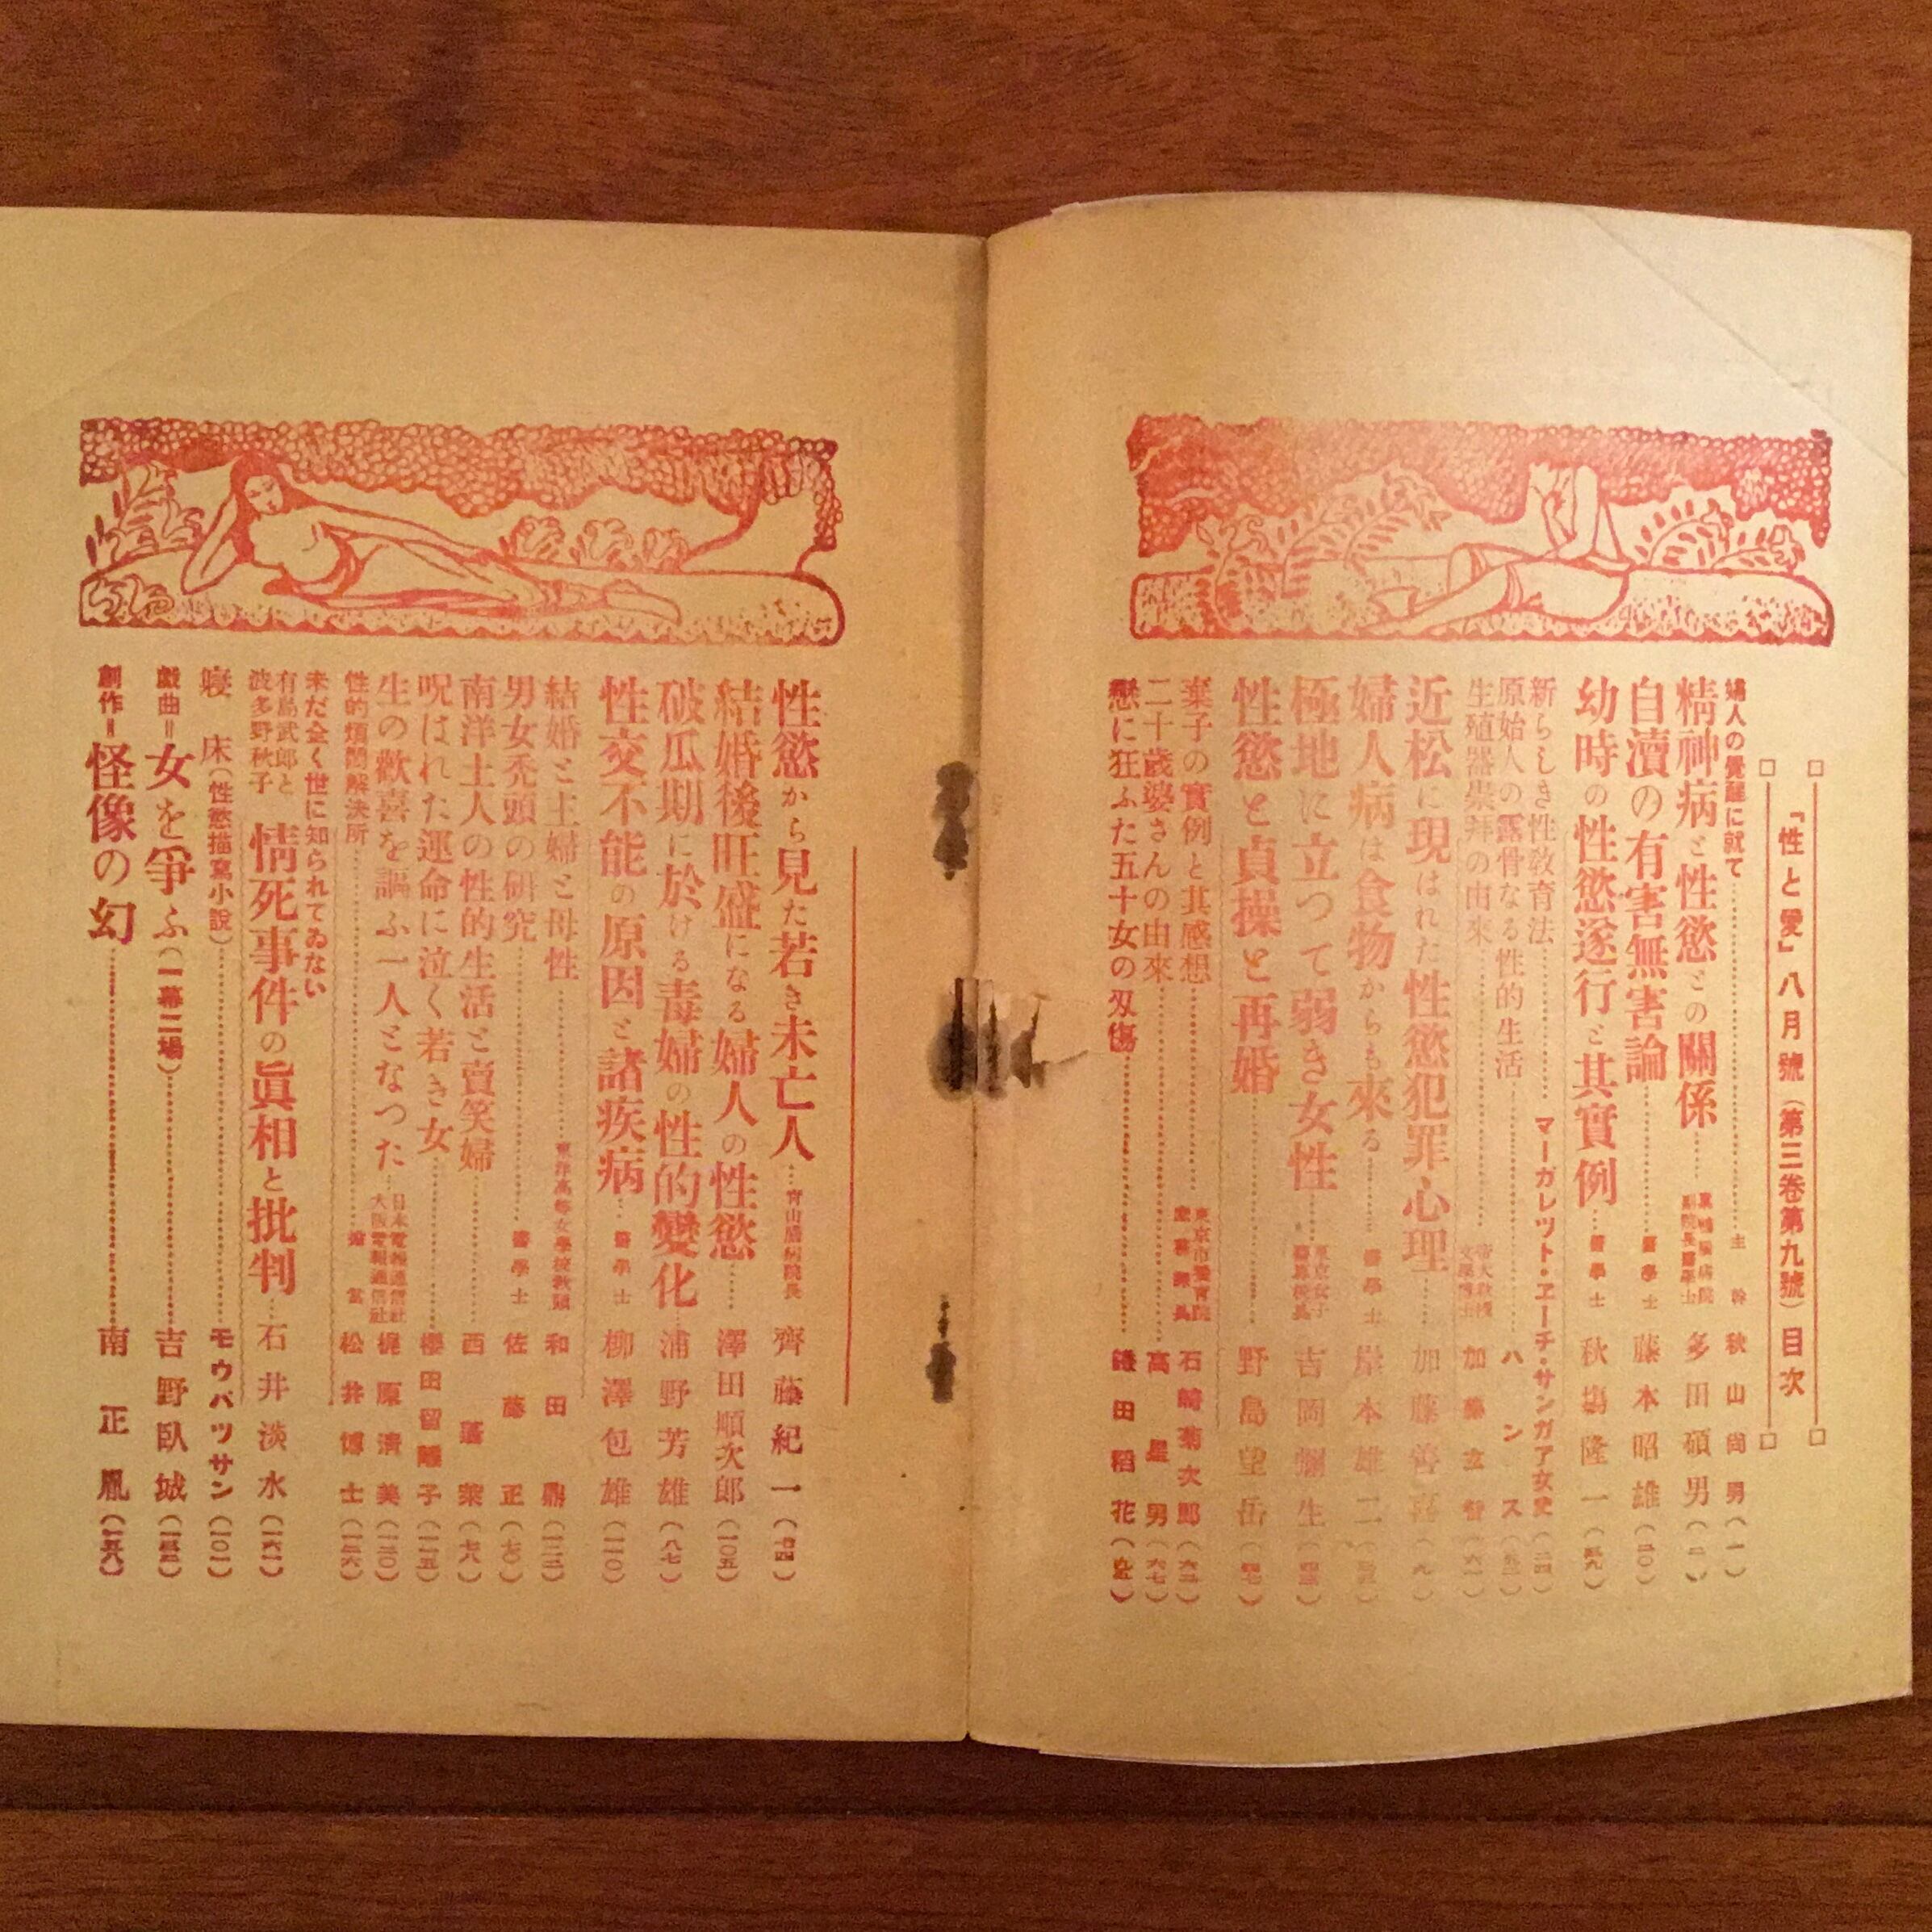 「性と愛」八月號（第三卷第九號）目次
婦人の覺醒に就て 主幹 秋山尚男（一）
精神病と性慾との關係 副院長醫學士 多田碩男（二）
自瀆の有害無害論 醫學士 藤本昭雄（二〇）
幼時の性慾遂行と其實例 醫學士 秋塲隆一（五九）
新らしき性敎育法 マーガレツト・エーチ・サンガア女史（二四）
原始人の露骨なる性的生活 ハンス
生殖器崇拜の由來 文學博士 加藤玄智（六一）
近松に現はれた性慾犯罪心理 加藤善喜（九）
婦人病は食物からも來る 醫學士 岸本雄二
極地に立つて弱き女性 吉岡彌生
性慾と貞操と再婚 野島望岳
棄子の實例と其感想 東京市養育院 石崎菊次郎（六二）
二十歲婆さんの由來 高星男（六七）
戀に狂ふた五十女の刄傷 鎌田稻花
性慾から見た若き未亡人 青山腦病院長 齊藤紀一（七四）
結婚後旺盛になる婦人の性慾 澤田順次郎（一〇五）
破瓜期に於ける毒婦の性的變化 浦野芳雄（八七）
性交不能の原因と諸疾病 醫學士 柳澤包雄（一一〇）
結婚と主婦と母性 東洋高等女學校敎頭 和田鼎
男女禿頭の硏究 醫學士 佐藤正（七〇）
南洋土人の性的生活と賣笑婦 西蓬萊（七八）
呪はれた運命に泣く若き女 櫻田留離子（一一五）
生の歡喜を謳ふ一人となつた 日本電報通信社 大阪電報通信社 梶原淸美（一二〇）
性的煩悶解決所 擔當 松井博士（一二六）
未だ全く世に知られてゐない
有島武郎と波多野秋子 情死事件の眞相と批判 石井淡水（一六一）
寢床（性慾描寫小說） モウパツサン（一〇一）
戲曲＝女を爭ふ（一幕二場） 吉野臥城
創作＝怪像の幻 南正胤（一五八）